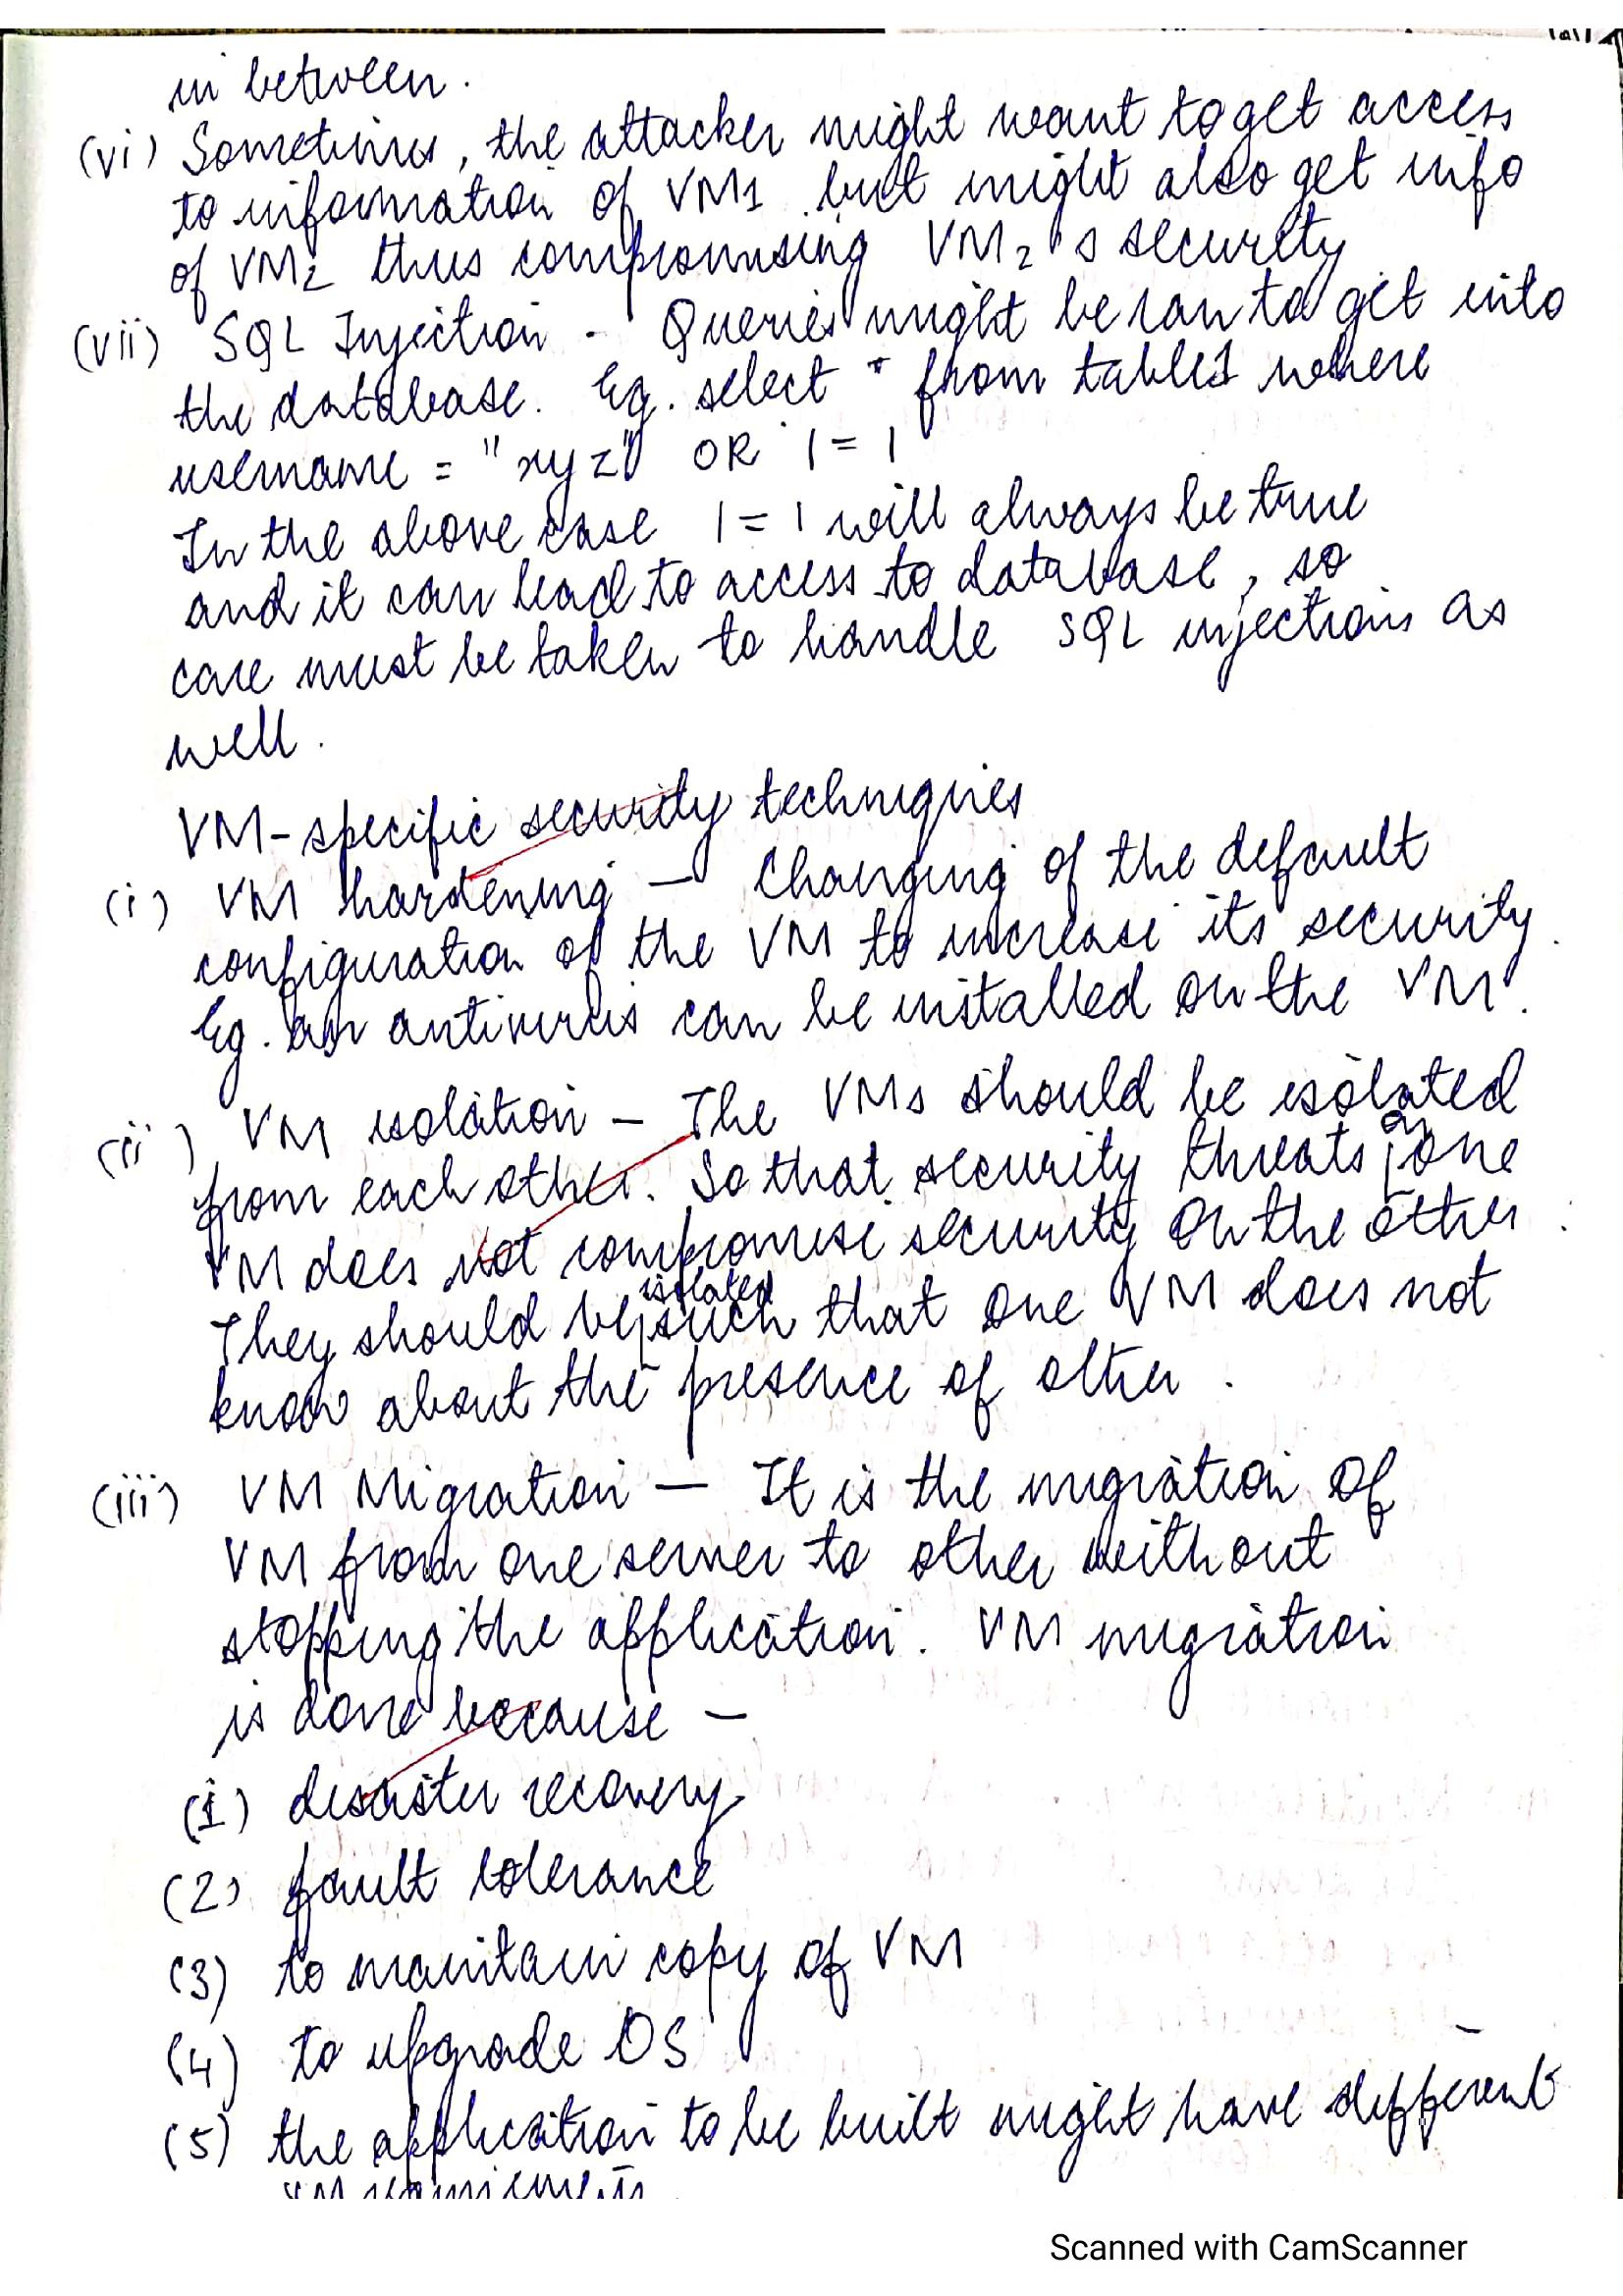 in between.
(vi) Sometimes, the attacker might want to get access
to information of VM1 but might also get info
of VM2 thus compromising VM2's security
(vii) SQL Injection - Queries might be ran to get into
the database. Eg. select * from table1 where
username = "xyz" OR 1 = 1
In the above case 1 = 1 will always be true
and it can lead to access to database, so
care must be taken to handle SQL injections as
well.
VM-specific security techniques
(i) VM hardening — Changing of the default
configuration of the VM to increase its security.
Eg. an antivirus can be installed on the VM.
(ii) VM isolation — The VMs should be isolated
from each other. So that security threats on one
VM does not compromise security on the other.
They should be isolated such that one VM does not
know about the presence of other.
(iii) VM Migration — It is the migration of
VM from one server to other without
stopping the application. VM migration
is done because —
(1) disaster recovery
(2) fault tolerance
(3) to maintain copy of VM
(4) to upgrade OS
(5) the application to be built might have different
VM requirements.
Scanned with CamScanner